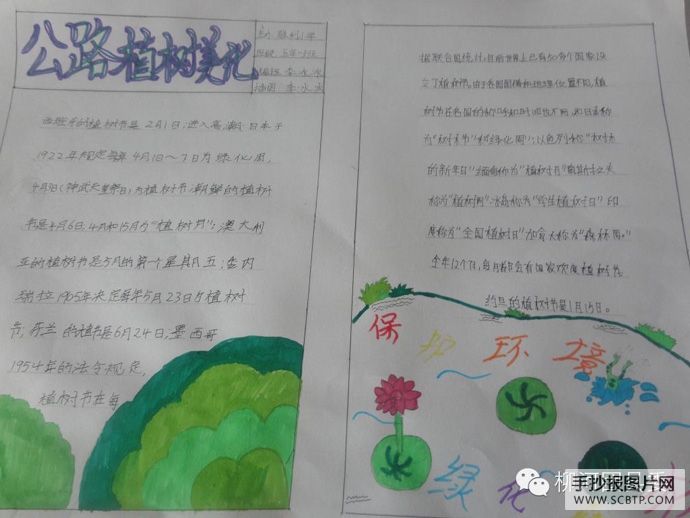 公路植树美化
西班牙的植树节是2月1日进入高潮日本于
1922年规定每年4月1日～7日为绿化周,
4月3日(神武天皇祭日)为植树节;朝鲜的植树
节是4月6日4月和5月为"植树月";澳大利
亚的植树节是5月的第一个星期五;委内
瑞拉1905年决定每年5月23日为植树
节,芬兰的植树节是6月24日,墨西哥
1954年的法令规定,
植树节在每
据联合国统计,目前世界上已有50多个国家设
立了植树节。由于各国国情和地理位置不同,植
树节在各国的称呼和时间也不同,如日本称
为"树木节"和"绿化周";以色列称"树木
的新年日";缅甸称为"植树月"南斯拉夫
称为"植树周";冰岛称为"学生植树日"印
度称为"全国植树日"加拿大称为"森林周"。
全年12个月,每月都会有国家欢度植树节
约旦的植树节是1月15日。
保护环境
绿化
手抄报图片网
WWW.SCBTP.COM